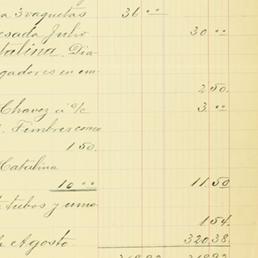 a 3 vaquetas 36 °°
esada Julio 30 °°
talina. Dia-
gadores en em-
2 50.
Chavez á c/c 3. °°
. Timbres como
1 50.
Catalina
10 °° 11.50
tubos y uma
154.
Agosto 320.38.